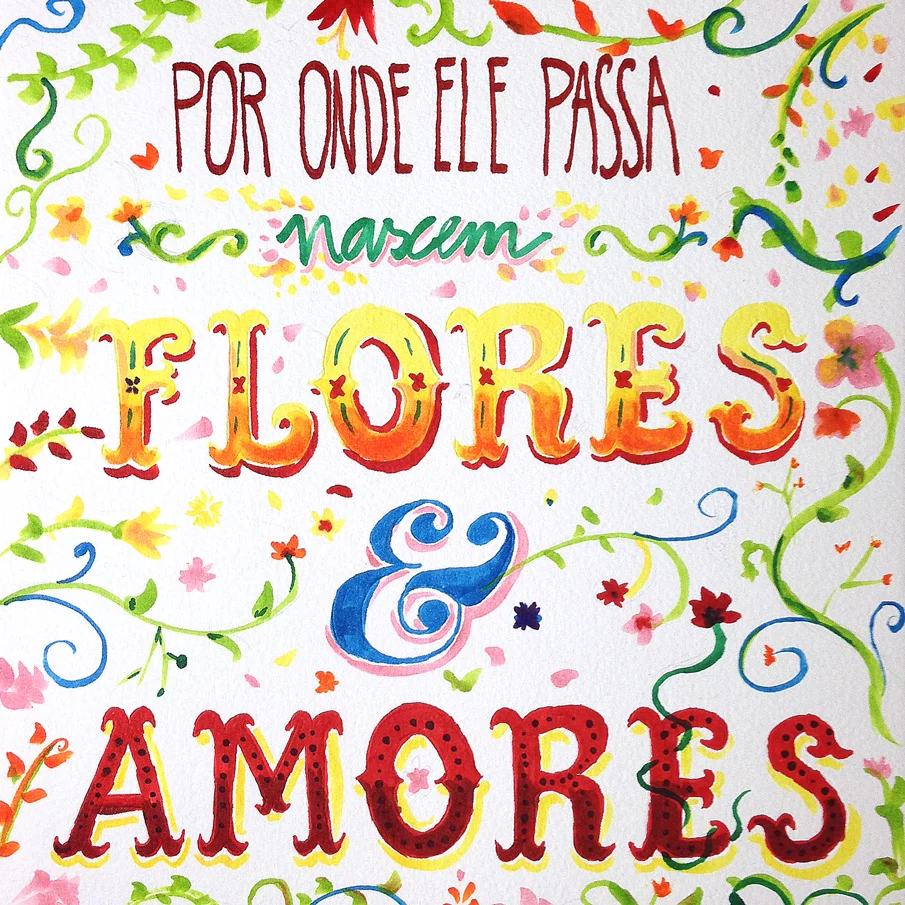 POR ONDE ELE PASSA
nascem
FLORES
&
AMORES